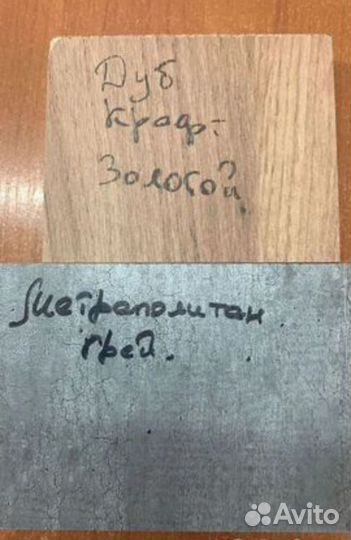 Дуб
крафт
Золотой.
Метрополитан
грей.
Avito